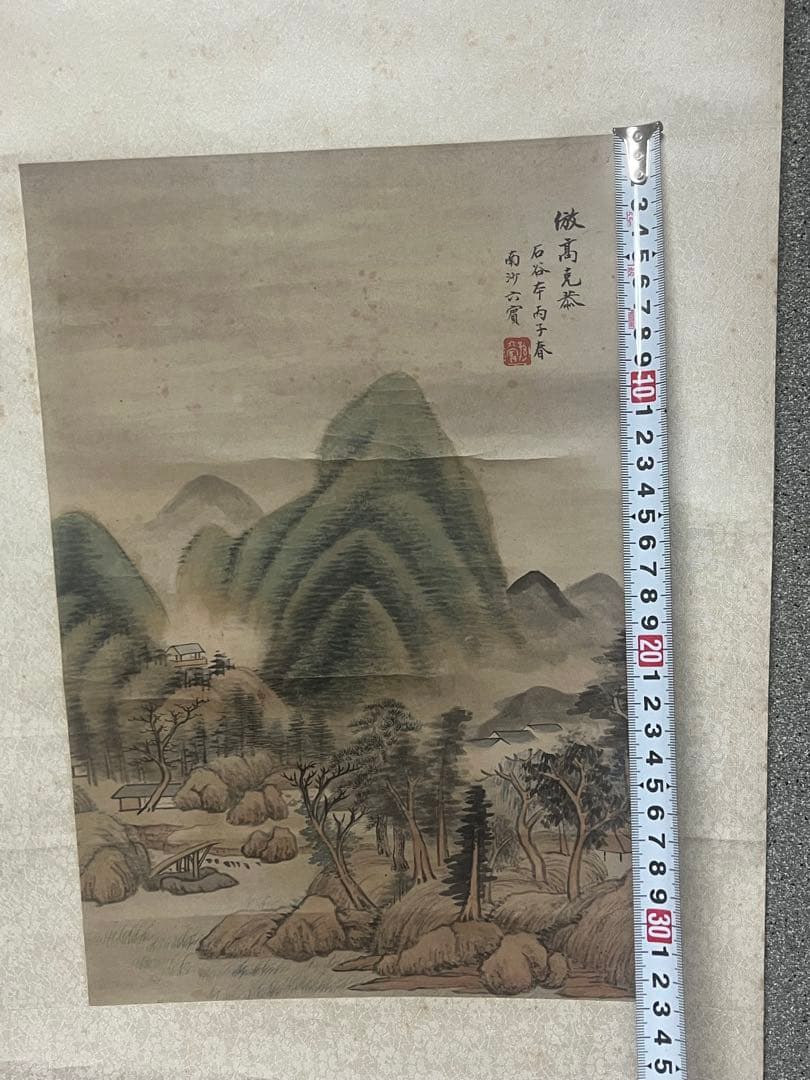 倣高克恭
石谷本丙子春
南沙六賓
2 3 4 5 6 7 8 9 10 1 2 3 4 5 6 7 8 9 20 1 2 3 4 5 6 7 8 9 30 1 2 3 4 5